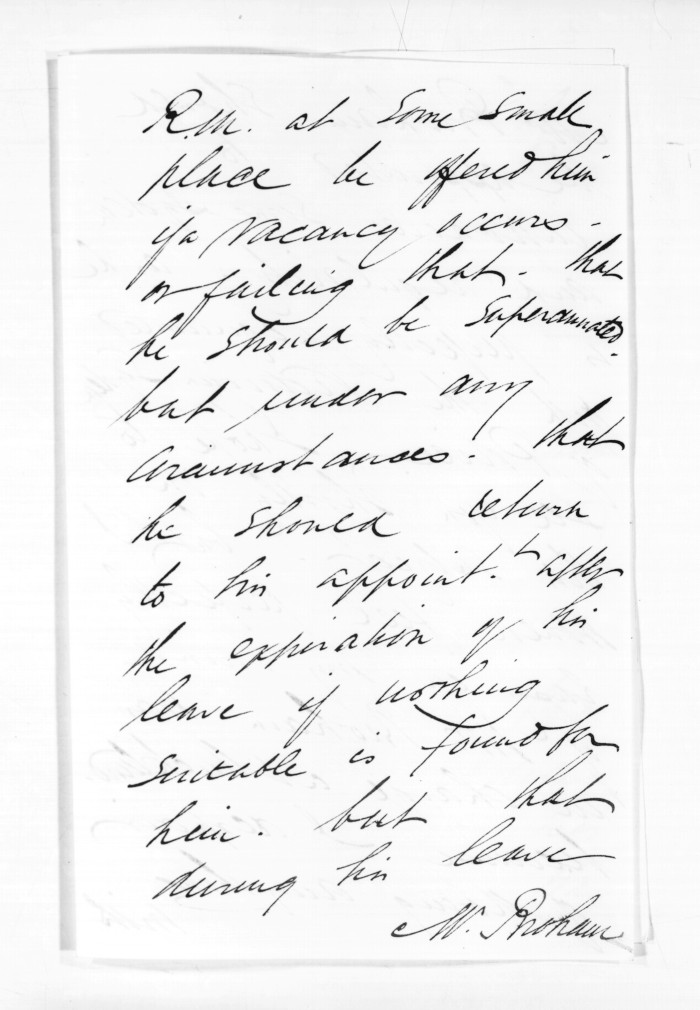 R.M. at some small
place be offered him
if a vacancy occurs -
or failing that - that
he should be superannuated.
but under any
circumstances - that
he should return
to his appoint.t after
the expiration of his
leave if nothing
suitable is found for
him. but that
during his leave
Mr.